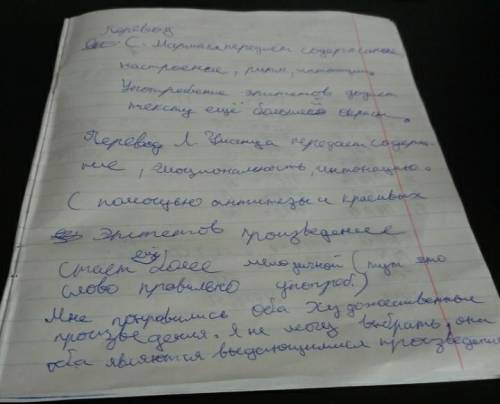 Перевод
С. Маршака передаёт содержание
настроение, ритм, интонацию.
Употребление эпитетов додает
тексту ещё большей окраски.
Перевод Л. передает содержа-
ние, эмоциональность, интонацию.
С помощью антитезы и красивых
эпитетов произведение
стает ещё более мелодичной (тут это
слово правильно употреб.)
Мне понравились оба художественные
произведения. Я не могу выбрать, они
оба являются выдающимися произведени